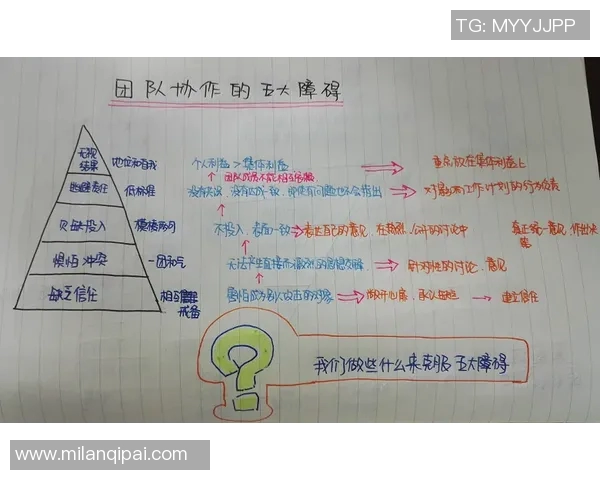 TG: MYYJJPP
团队协作的五大障碍
无视结果 地位和自我 个人利益 > 集体利益 重点放在集体利益上
逃避责任 低标准 对影响工作计划的行为负责
欠缺投入 模棱两可 不投入，表面一致 表达自己的意见，在 公开的讨论中 真正统一意见，作出决策
惧怕冲突 一团和气 无法产生直接而激烈的思想交锋 针对性的讨论、意见
缺乏信任 相互戒备 害怕成为别人攻击的对象 敞开心扉，承认 建立信任
我们做些什么来克服五大障碍
www.milanqipai.com